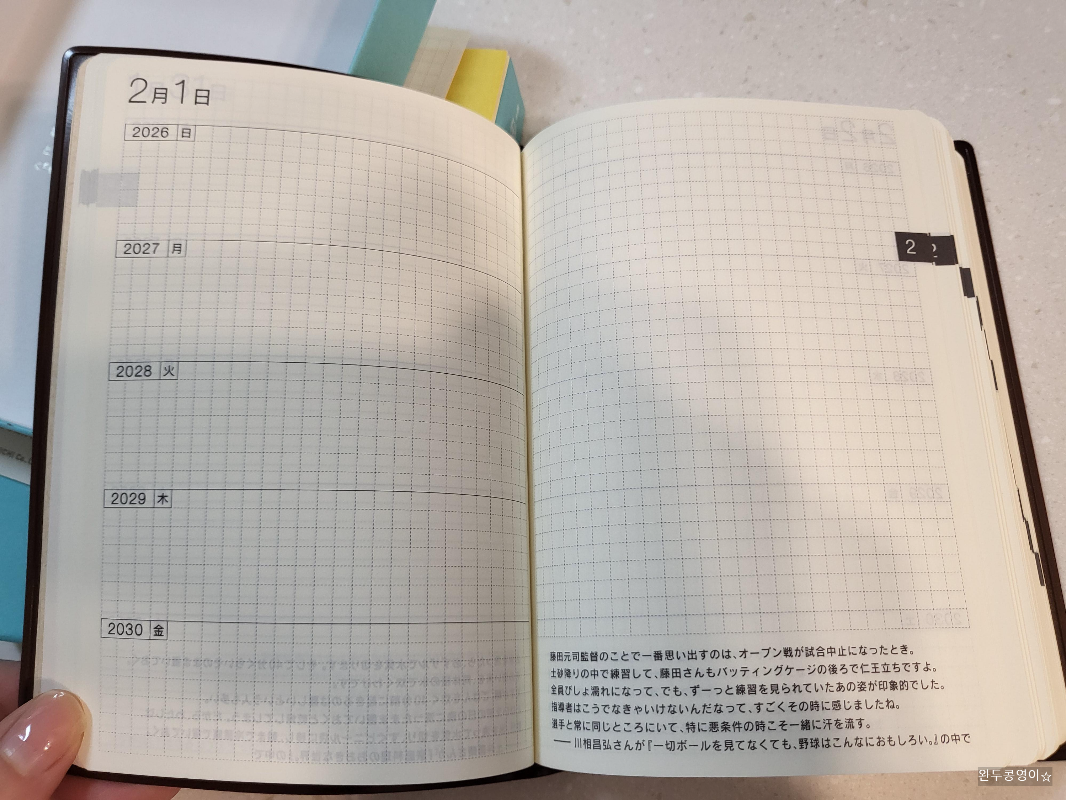 2月1日
2026 日
2027 月
2028 火
2029 木
2030 金
2
藤田元司監督のことで一番思い出すのは、オープン戦が試合中止になったとき。
土砂降りの中で練習して、藤田さんもバッティングケージの後ろで仁王立ちですよ。
全員びしょ濡れになって、でも、ずーっと練習を見られていたあの姿が印象的でした。
指導者はこうでなきゃいけないんだなって、すごくその時に感じましたね。
選手と常に同じところにいて、特に悪条件の時こそ一緒に汗を流す。
──川相昌弘さんが『一切ボールを見てなくても、野球はこんなにおもしろい。』の中で
완두콩영이☆